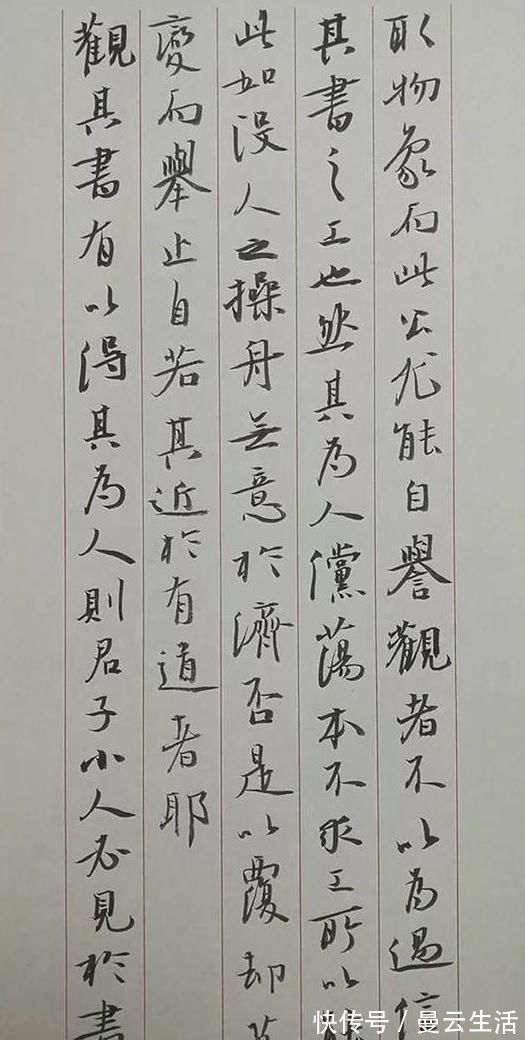 取物象而此公尤能自譽觀者不以為過信
其書之工也然其為人儻蕩本不求工所以能
此如没人之操舟無意於濟否是以覆却萬
變而舉止自若其近於有道者耶
觀其書有以得其為人則君子小人必見於書
快传号/曼云生活